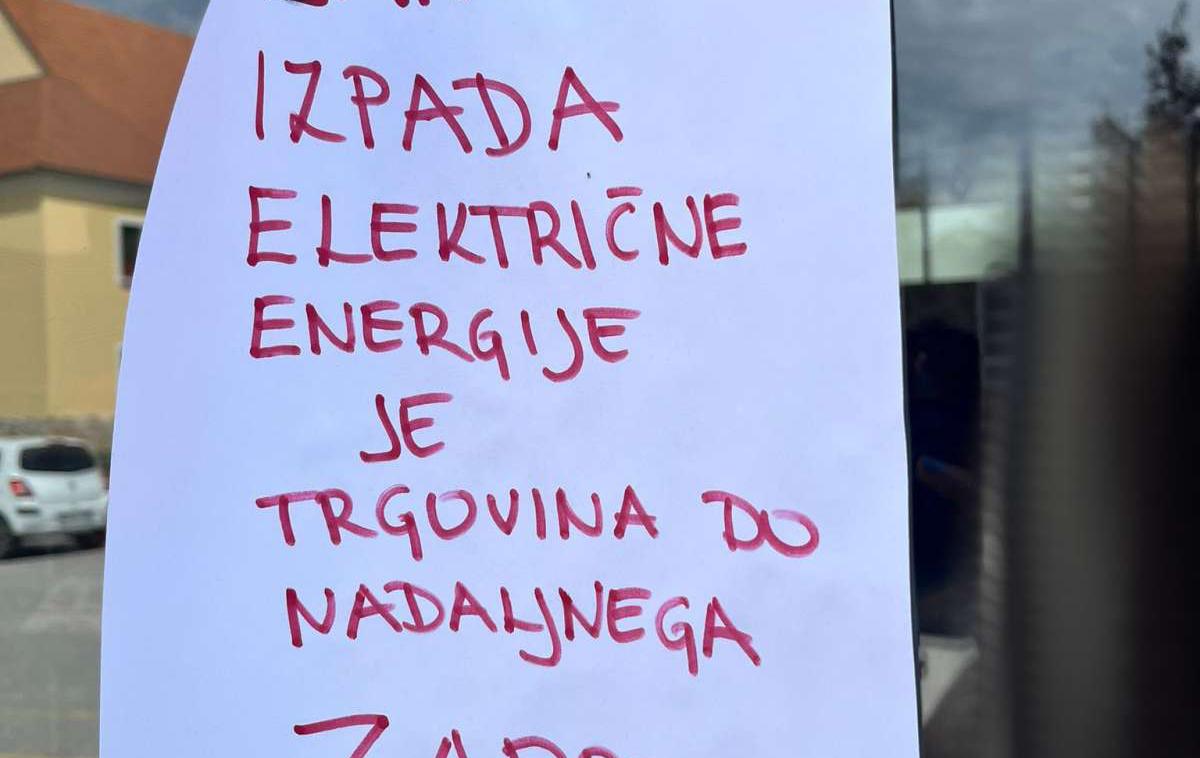 IZPADA
ELEKTRIČNE
ENERGIJE
JE
TRGOVINA DO
NADALJNEGA